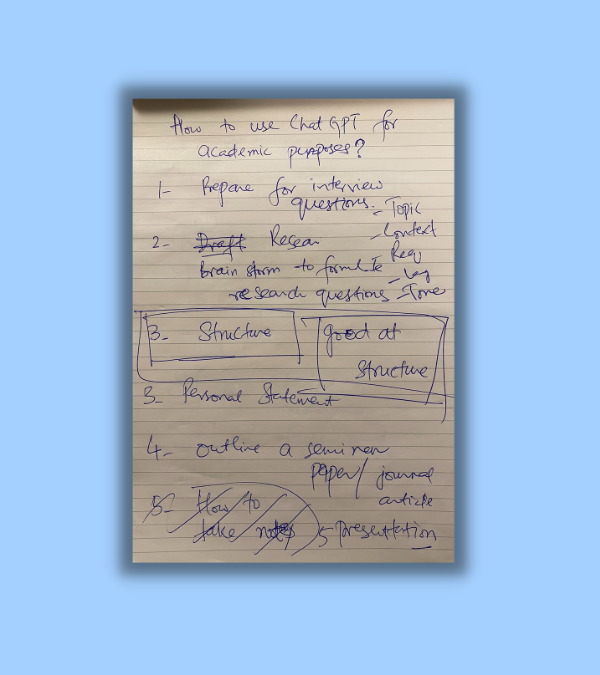 How to use Chat GPT for
academic purposes?
1- Prepare for interview
questions.
- Topic
- Context
2- Draft Resear
Req
brain storm to formlte
- Lag
research questions - Tone
3- Structure
good at
structure
3- Personal Statement
4- outline a seminar
paper/ journal
article
5- How to
take notes
5 Presentation